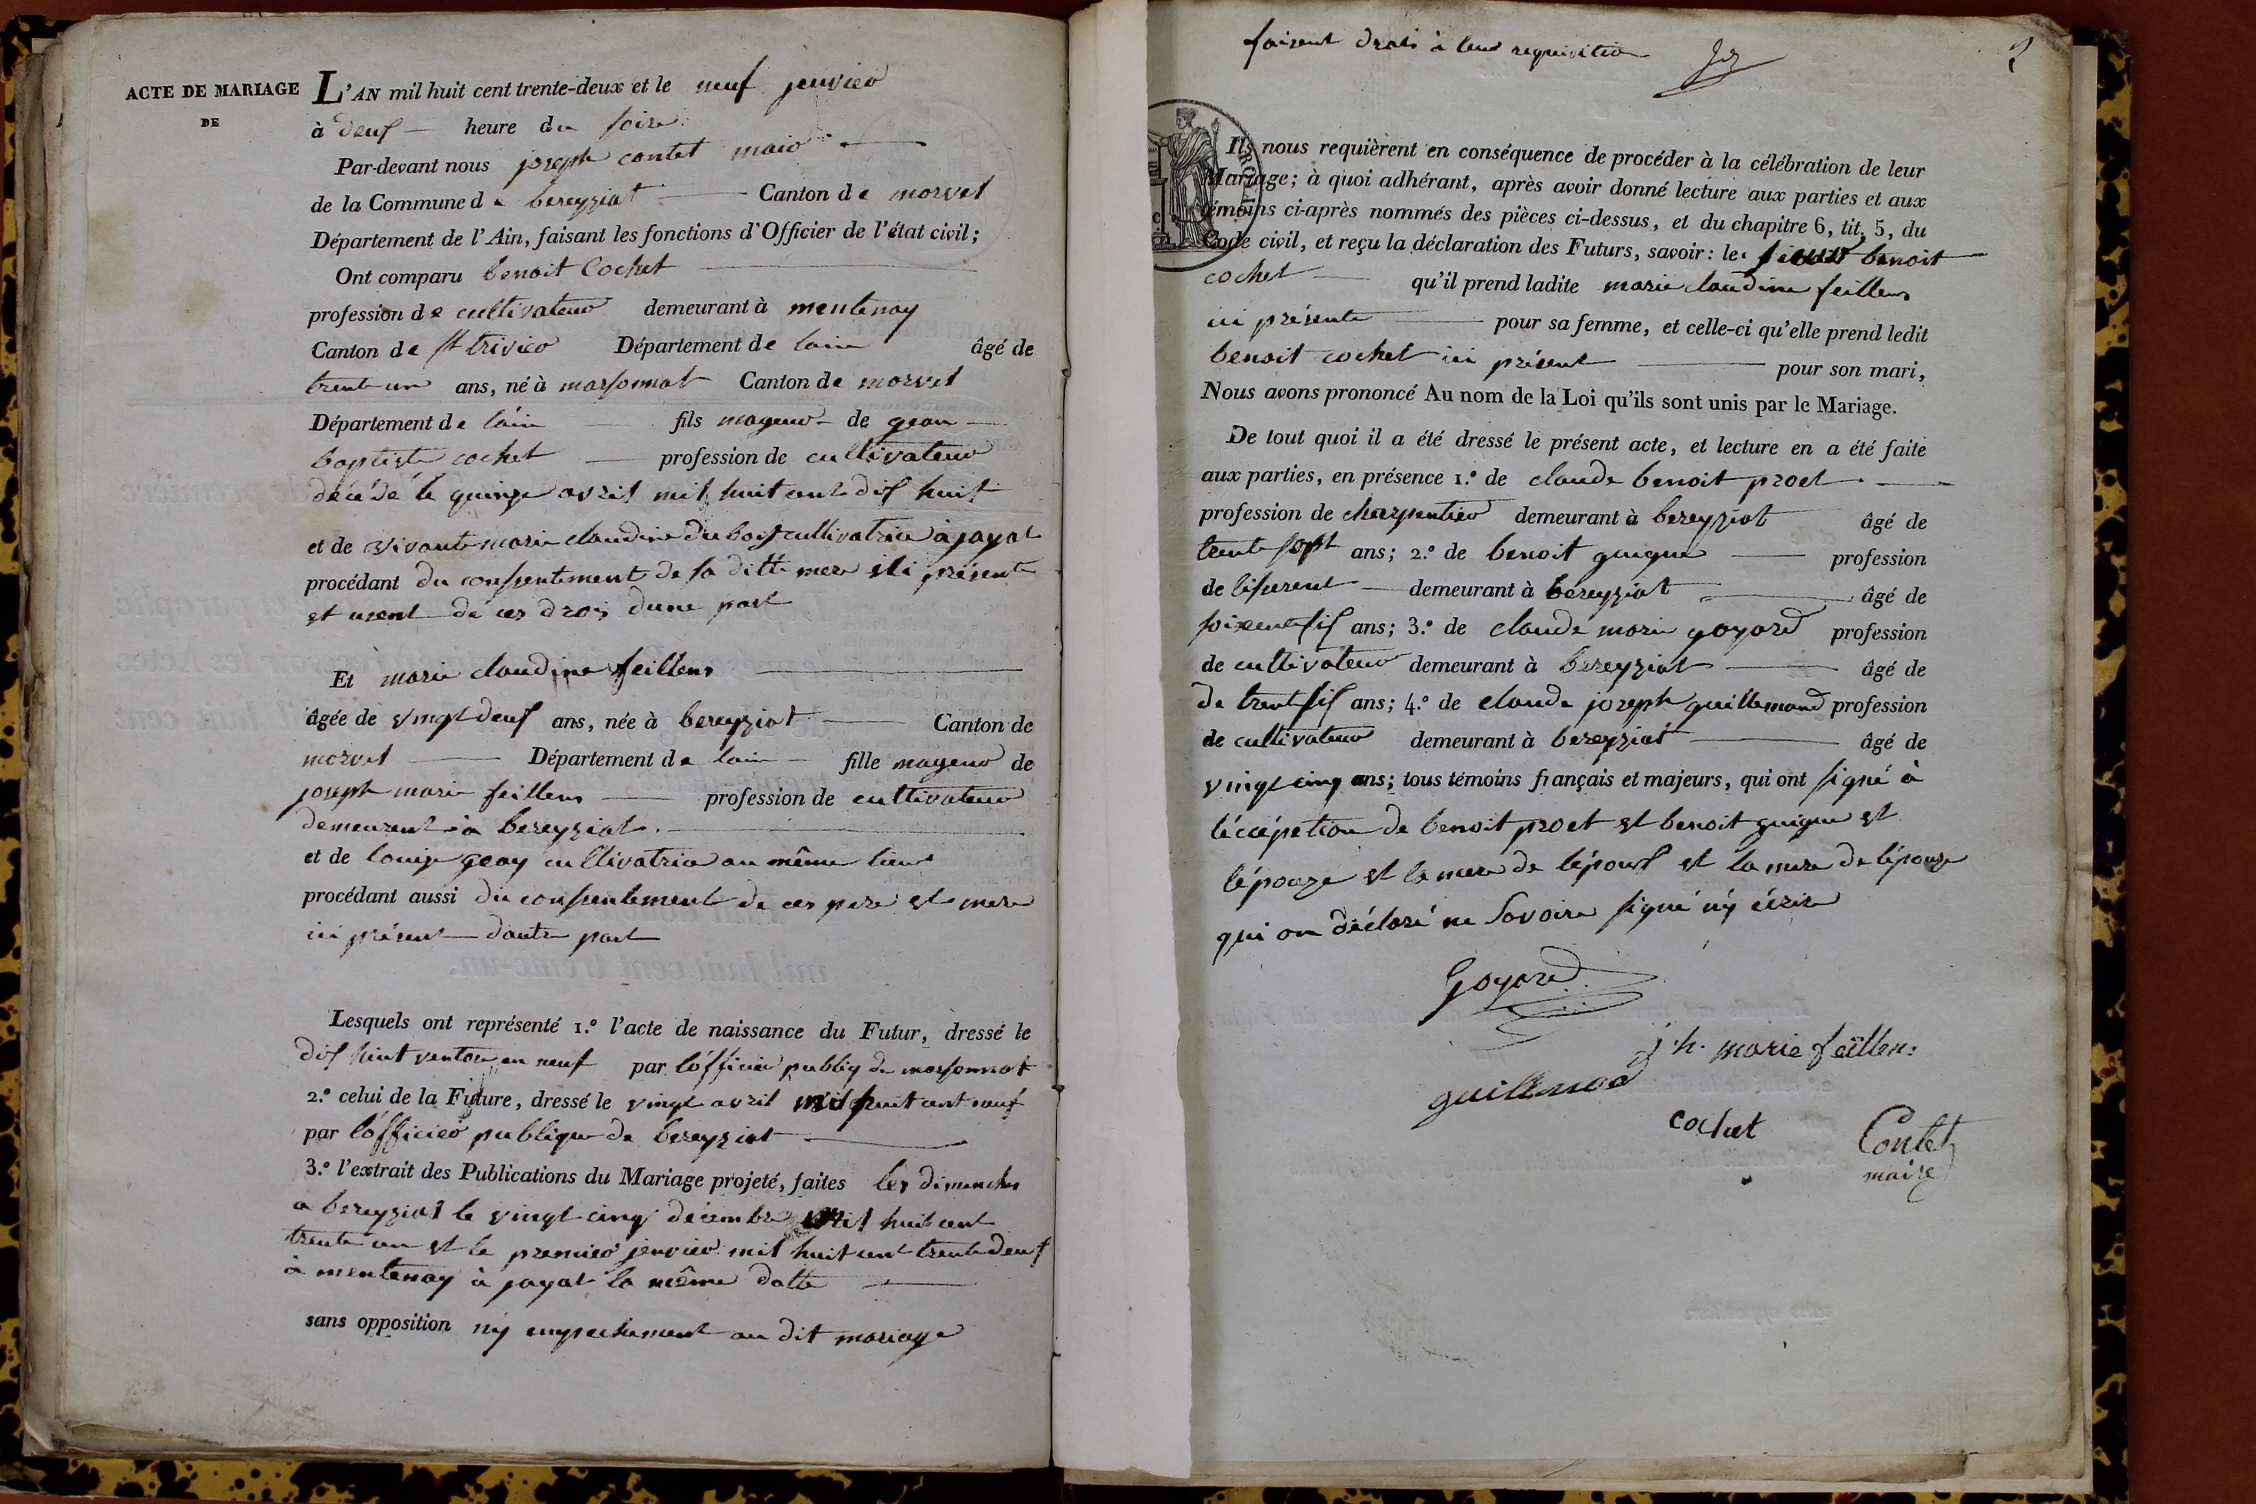 ACTE DE MARIAGE
DE
L'AN mil huit cent trente-deux et le neuf jenvier
à deuf heure du soire
Par-devant nous joseph contet maire
de la Commune de bereyziat Canton de morvel
Département de l'Ain, faisant les fonctions d'Officier de l'état civil;
Ont comparu benoit Cochet
profession de cultivateur demeurant à mentenay
Canton de st trivier Département de lain âgé de
trent un ans, né à marsonnat Canton de morvel
Département de l'ain fils mageur de gean
baptiste cochet profession de cultivateur
décédé le quinze avril mil huit cent dis huit
et de vivante marie claudine du bois cultivatrice à jayat
procédant du consentement de sa ditte mere ili présente
et usent de ces drois dune part
Et marie claudine feillens
âgée de vingt deuf ans, née à bereyziat Canton de
morvel Département de lain fille mageur de
joseph marie feillens profession de cultivateur
demeurent à bereyziat
et de louise geay cultivatrice au même lieux
procédant aussi du consentement de ces pere et mere
ici présent dautre part
Lesquels ont représenté 1.º l'acte de naissance du Futur, dressé le
dis huit ventose en neuf par lófficier publiq de marsonnat
2.º celui de la Future, dressé le vingt avril mil huit cent neuf
par lófficier publique de bereyziat
3.º l'extrait des Publications du Mariage projeté, faites les dimenches
a bereyziat le vingt cinq décembre mil huit cent
trente un et le premier jenvier mil huit cent trente deuf
à mentenay à jayat la même datte
sans opposition ny empechement au dit mariage
faisent drois à leur requisition
2
Ils nous requièrent en conséquence de procéder à la célébration de leur
Mariage; à quoi adhérant, après avoir donné lecture aux parties et aux
témoins ci-après nommés des pièces ci-dessus, et du chapitre 6, tit. 5, du
Code civil, et reçu la déclaration des Futurs, savoir: le benoit
cochet qu'il prend ladite marie claudine feillens
ici présente pour sa femme, et celle-ci qu'elle prend ledit
benoit cochet ici présent pour son mari,
Nous avons prononcé Au nom de la Loi qu'ils sont unis par le Mariage.
De tout quoi il a été dressé le présent acte, et lecture en a été faite
aux parties, en présence 1.º de claude benoit proet
profession de charpentier demeurant à bereyziat âgé de
trente sept ans; 2.º de benoit guigue profession
de tiserent demeurant à béreyziat âgé de
soixent sis ans; 3.º de claude marie goyard profession
de cultivateur demeurant à béreyziat âgé de
de trent sis ans; 4.º de claude joseph guillemaud profession
de cultivateur demeurant à bereyziat âgé de
vingt cinq ans; tous témoins français et majeurs, qui ont signé à
léccépetion de benoit proet et benoit guigue et
lépouze et la mere de lépous et la mere de lépouze
qui on déclaré ne Savoire signé ny écrire
Goyard
jh. marie feïllens
guillemod
cochet
Contet
maire